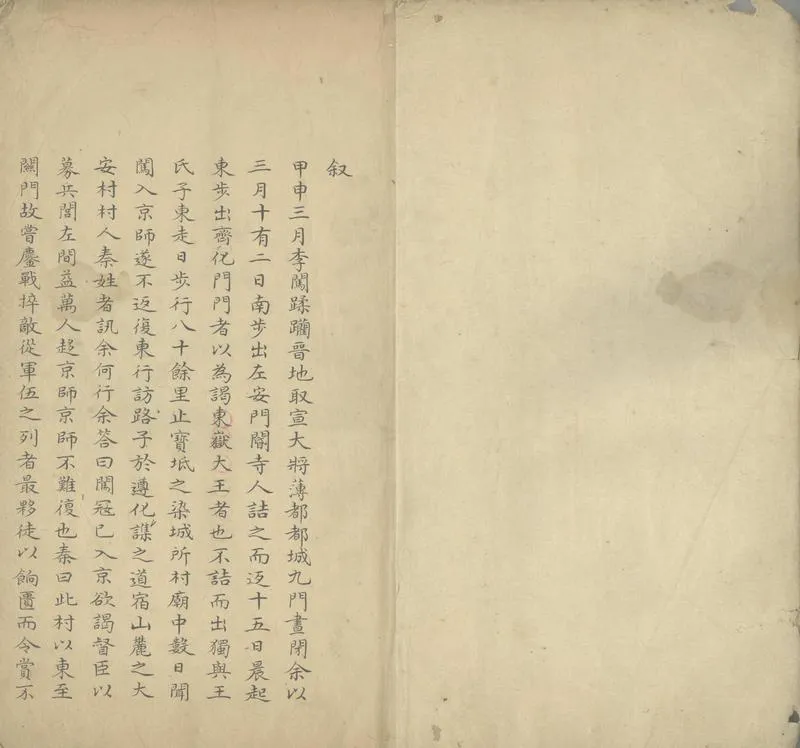 叙
甲申三月李闖蹂躪晉地取宣大將薄都都城九門晝閉余以
三月十有二日南步出左安門閽寺人詰之而返十五日晨起
東步出齊化門門者以為謁東嶽大王者也不詰而出獨與王
氏子東走日步行八十餘里止寶坻之染城所村廟中數日聞
闖入京師遂不返復東行訪路子於遵化謀之道宿山麓之大
安村村人秦姓者訊余何行余答曰闖寇已入京欲謁督臣以
募兵閭左間益萬人趍京師京師不難復也秦曰此村以東至
關門故嘗鏖戰捽敵從軍伍之列者最夥徒以餉匱而令賞不